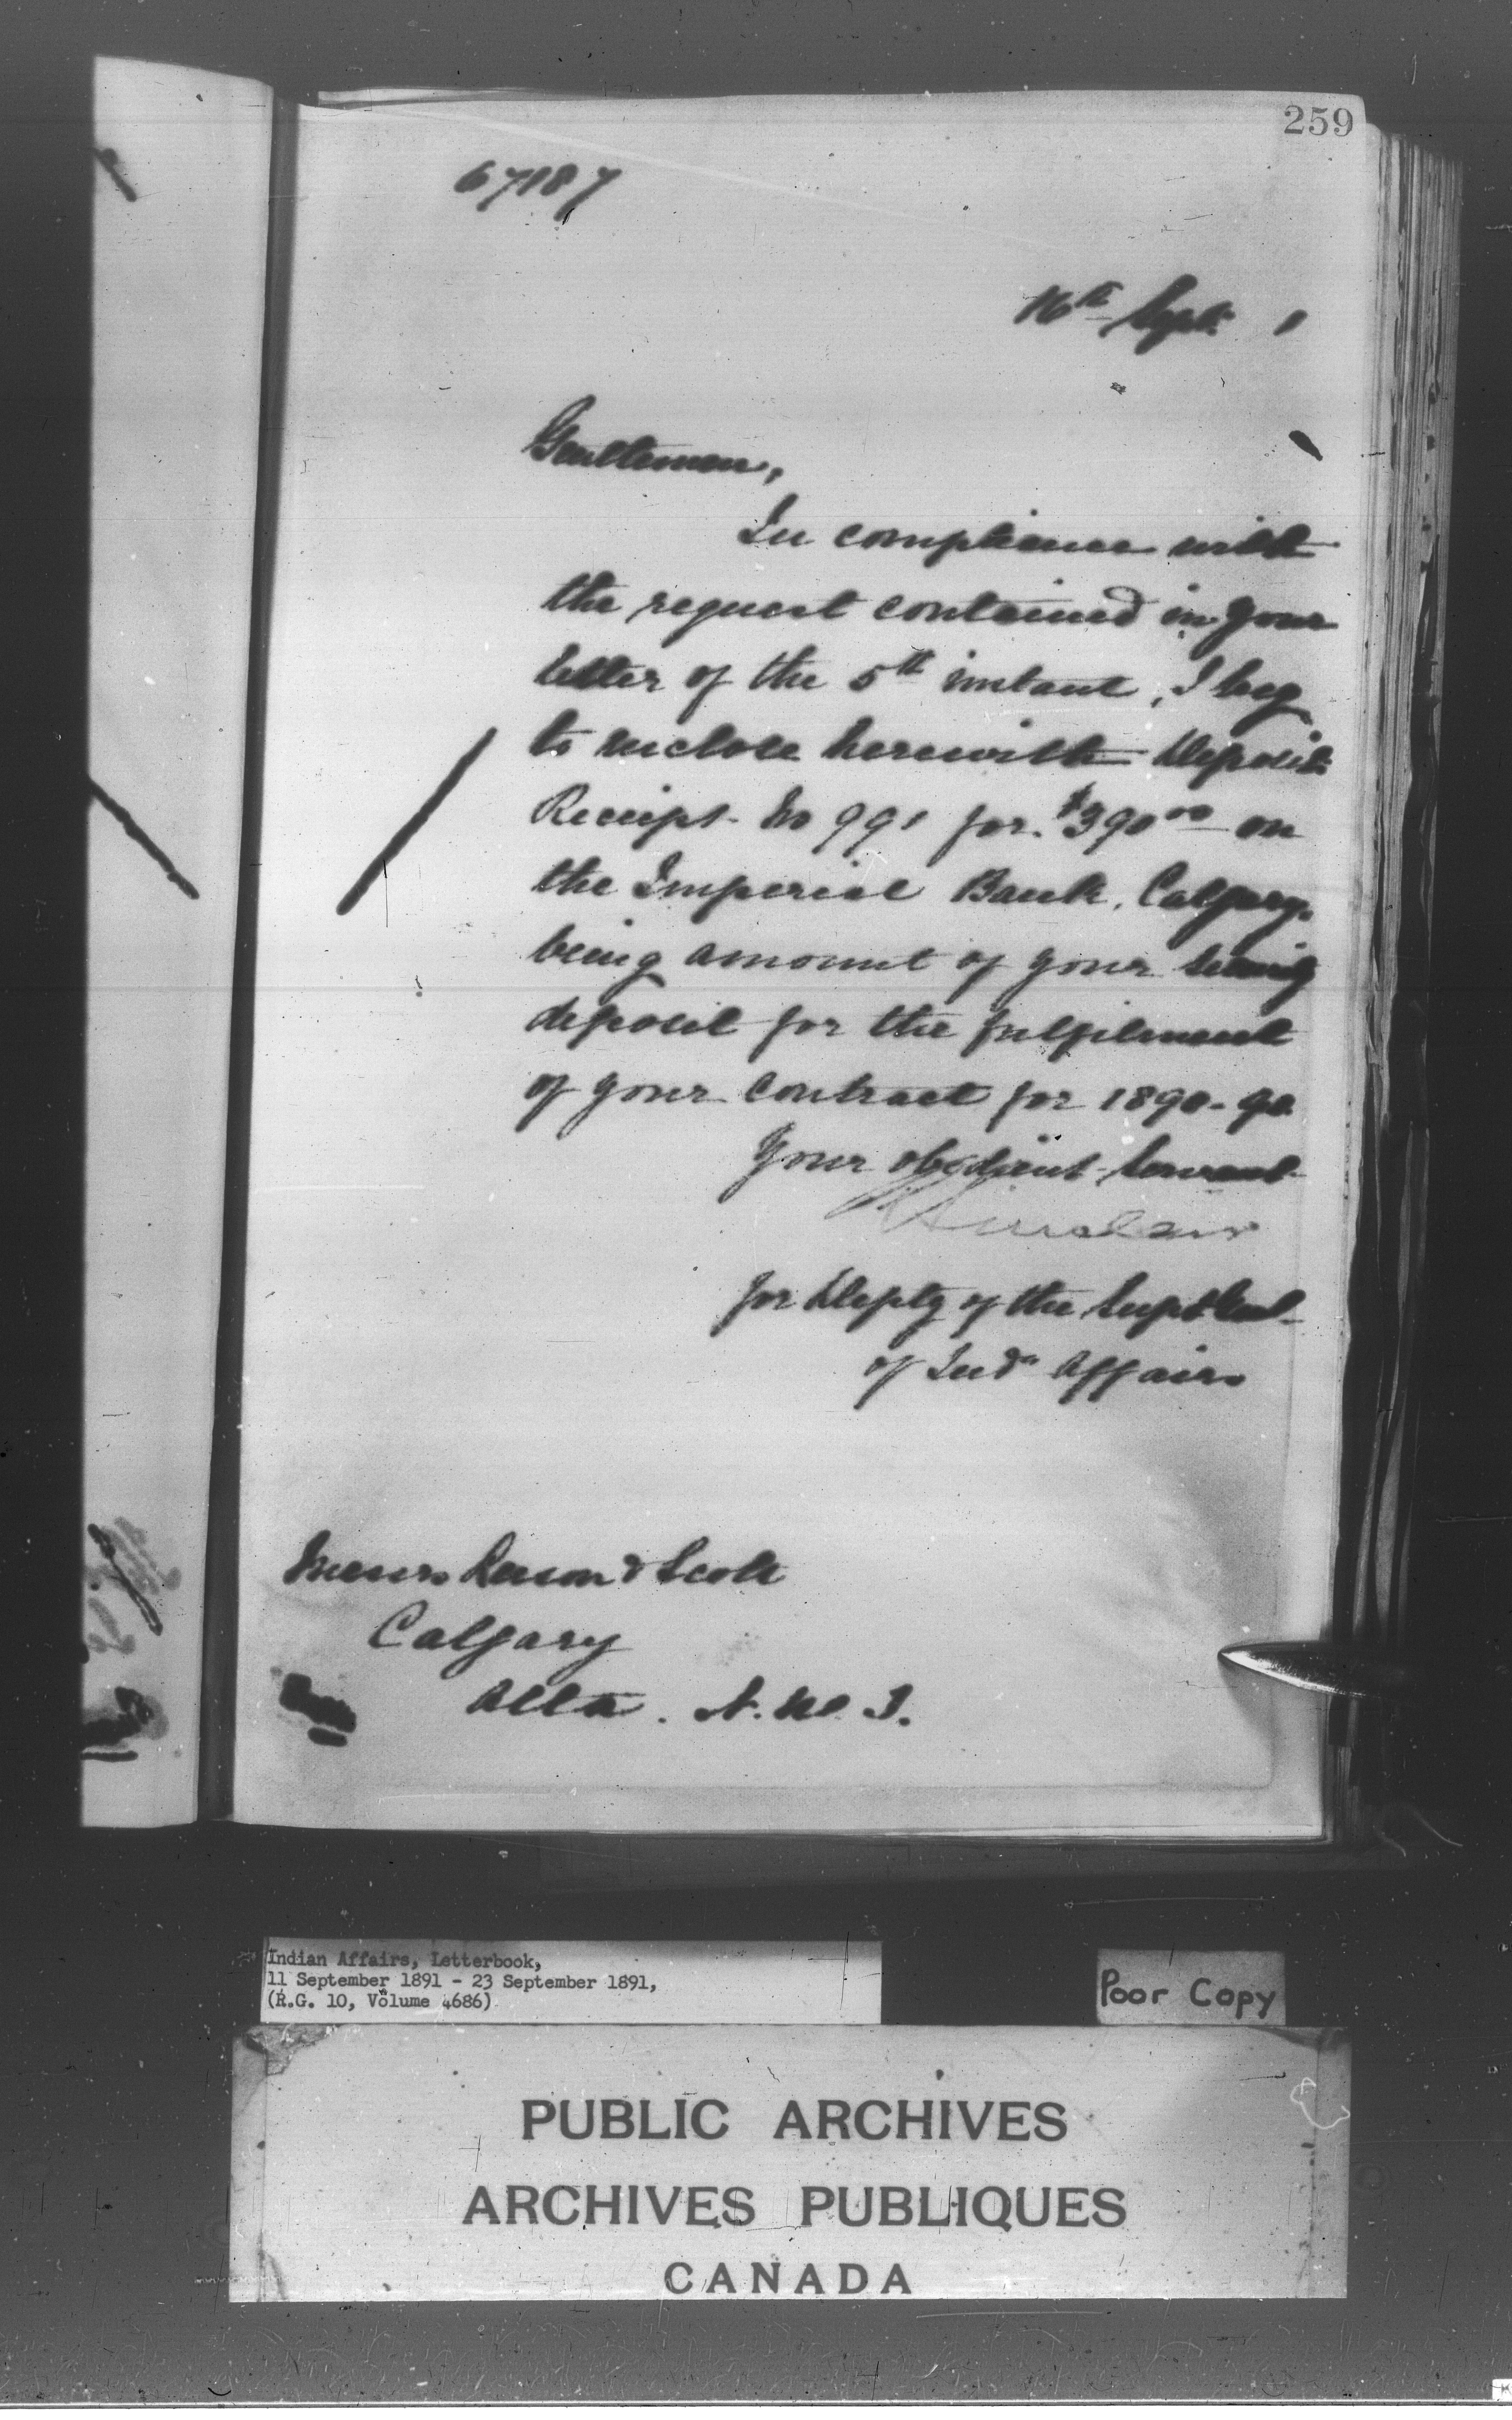 259
67187
16th Sept. 1
Gentlemen,
In compliance with
the request contained in your
letter of the 5th instant, I beg
to inclose herewith Deposit
Receipt No 991 for $390.00 on
the Imperial Bank, Calgary.
being amount of your
deposit for the fulfilment
of your contract for 1890-90
Your obedient Servant
for Depty of the Supt Genl
of Indn Affairs
Messrs & Scott
Calgary
Alta. N.W.T.
Indian Affairs, Letterbook,
11 September 1891 - 23 September 1891,
(R.G. 10, Volume 4686)
Poor Copy
PUBLIC ARCHIVES
ARCHIVES PUBLIQUES
CANADA